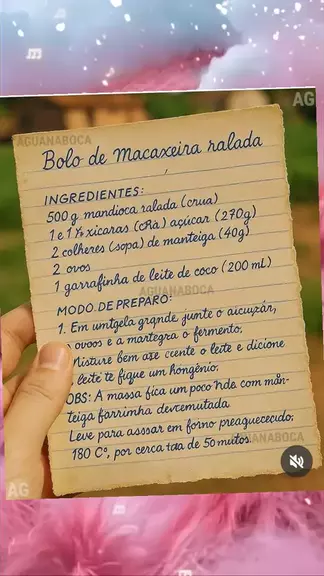 AG
AGUANABOCA
Bolo de Macaxeira ralada
INGREDIENTES:
500 g mandioca ralada (crua)
1 e 1½ xicaras (chà) açúcar (270g)
2 colheres (sopa) de manteiga (40g)
2 ovos
1 garrafinha de leite de coco (200 mL)
AGUANABOCA
MODO DE PREPARO:
1. Em umtgela grqnde, junte o
ovoos e a martegra o fermento,
Misture bem ase ciente o leite e dicione
leite te fique um hongênio.
OBS: A massa fica um poco com mån-
teiga farrinha devcemutada
Leve para asssar em forno preaquececido,
180 C°, por cerca de 50
AGUANABOCA
AG